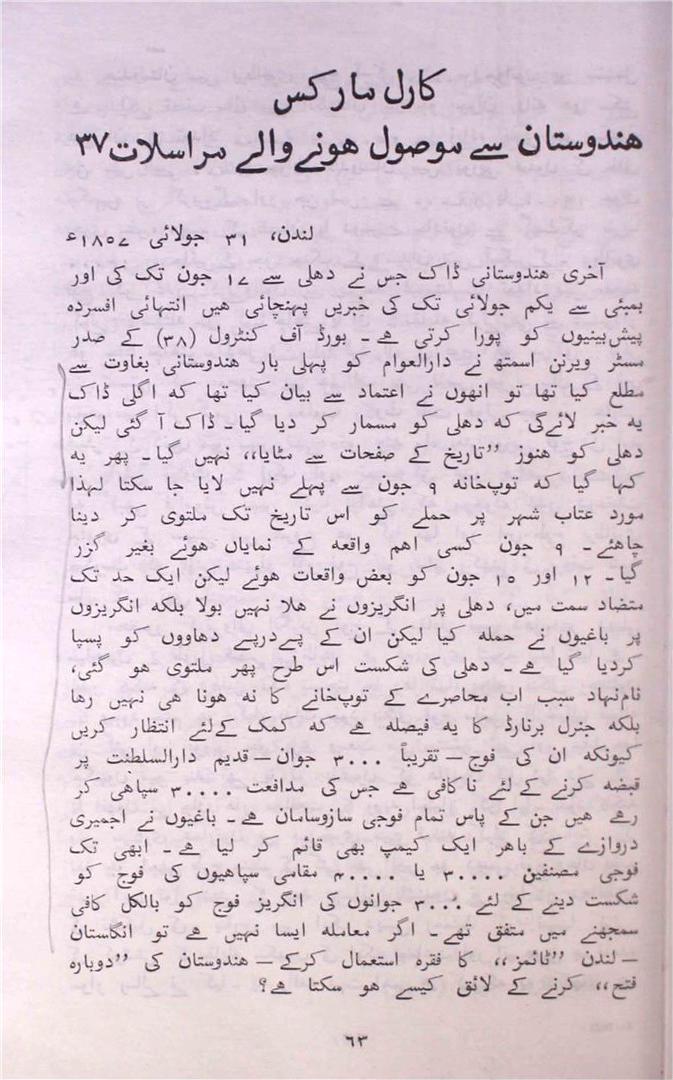 کارل مارکس
هندوستان سے موصول هونے والے مراسلات ۳۷
لندن، ۳۱ جولائی ۱۸۵۷ء
آخری هندوستانی ڈاک جس نے دهلی سے ۱۷ جون تک کی اور
بمبئی سے یکم جولائی تک کی خبریں پہنچائی هیں انتہائی افسردہ
پیش بینیوں کو پورا کرتی هے۔ بورڈ آف کنٹرول (۳۸) کے صدر
مسٹر ویرنن اسمتھ نے دارالعوام کو پہلی بار هندوستانی بغاوت سے
مطلع کیا تھا تو انھوں نے اعتماد سے بیان کیا تھا که اگلی ڈاک
یه خبر لائے گی که دهلی کو مسمار کر دیا گیا۔ ڈاک آ گئی لیکن
دهلی کو هنوز ”تاریخ کے صفحات سے مٹایا،، نہیں گیا۔ پھر یه
کہا گیا که توپ خانه ۹ جون سے پہلے نہیں لایا جا سکتا لہذا
مورد عتاب شہر پر حملے کو اس تاریخ تک ملتوی کر دینا
چاهئے۔ ۹ جون کسی اهم واقعه کے نمایاں هوئے بغیر گزر
گیا۔ ۱۲ اور ۱۵ جون کو بعض واقعات هوئے لیکن ایک حد تک
متضاد سمت میں، دهلی پر انگریزوں نے هلا نہیں بولا بلکه انگریزوں
پر باغیوں نے حمله کیا لیکن ان کے پے درپے دهاووں کو پسپا
کردیا گیا هے۔ دهلی کی شکست اس طرح پھر ملتوی هو گئی،
نام نہاد سبب اب محاصرے کے توپ خانے کا نه هونا هی نہیں رها
بلکه جنرل برنارڈ کا یه فیصله هے که کمک کے لئے انتظار کریں
کیونکه ان کی فوج – تقریباً ۳۰۰۰ جوان – قدیم دارالسلطنت پر
قبضه کرنے کے لئے ناکافی هے جس کی مدافعت ۳۰۰۰۰ سپاهی کر
رهے هیں جن کے پاس تمام فوجی سازوسامان هے۔ باغیوں نے اجمیری
دروازے کے باهر ایک کیمپ بھی قائم کر لیا هے۔ ابھی تک
فوجی مصنفین ۳۰۰۰۰ یا ۴۰۰۰۰ مقامی سپاهیوں کی فوج کو
شکست دینے کے لئے ۳۰۰۰ جوانوں کی انگریز فوج کو بالکل کافی
سمجھنے میں متفق تھے۔ اگر معامله ایسا نہیں هے تو انگلستان
– لندن ”ٹائمز،، کا فقرہ استعمال کرکے – هندوستان کی ”دوبارہ
فتح،، کرنے کے لائق کیسے هو سکتا هے؟
۶۳